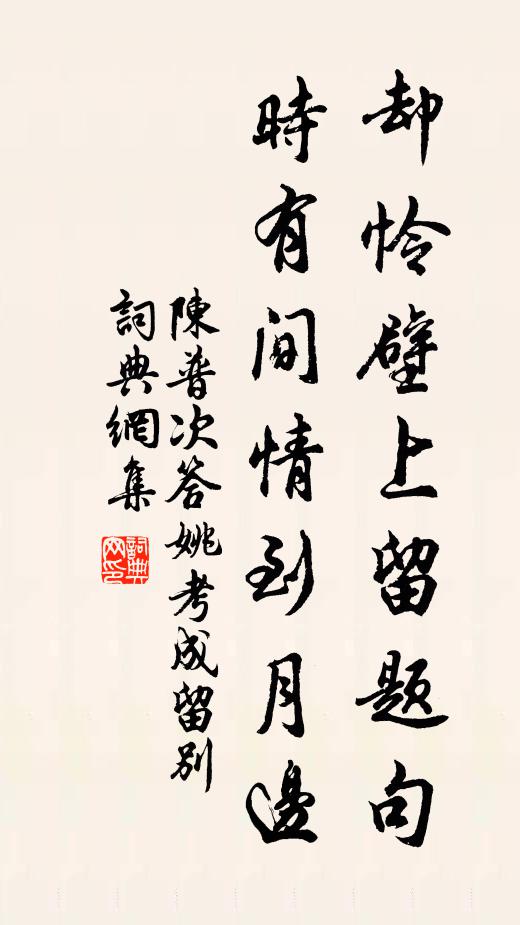 却怜壁上留題句
時有間情到月邊
陳普次答姚考成留别
詞典網集
詞典网印